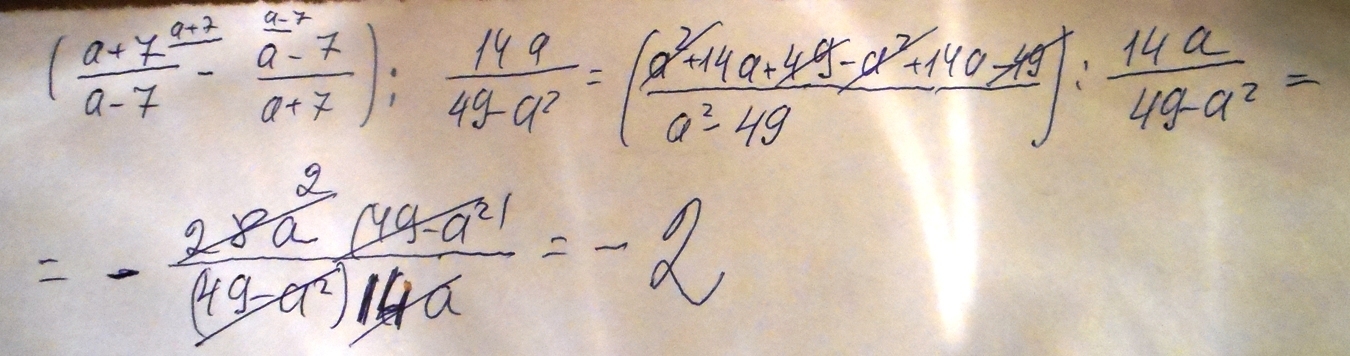 (a+7^{a+7}/a-7 - a-7^{a-7}/a+7) : 14a/49-a² = (a²+14a+49-a²+14a-49/a²-49) : 14a/49-a² =
= - 28a² (49-a²)/(49-a²)14a = -2